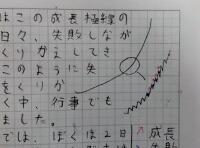 はこの成長極線の
日々、失敗しなが
くりかえしてき
このように失
をくりか
く中、行事でも
ました。
では、ぼくは2日
成長
失敗